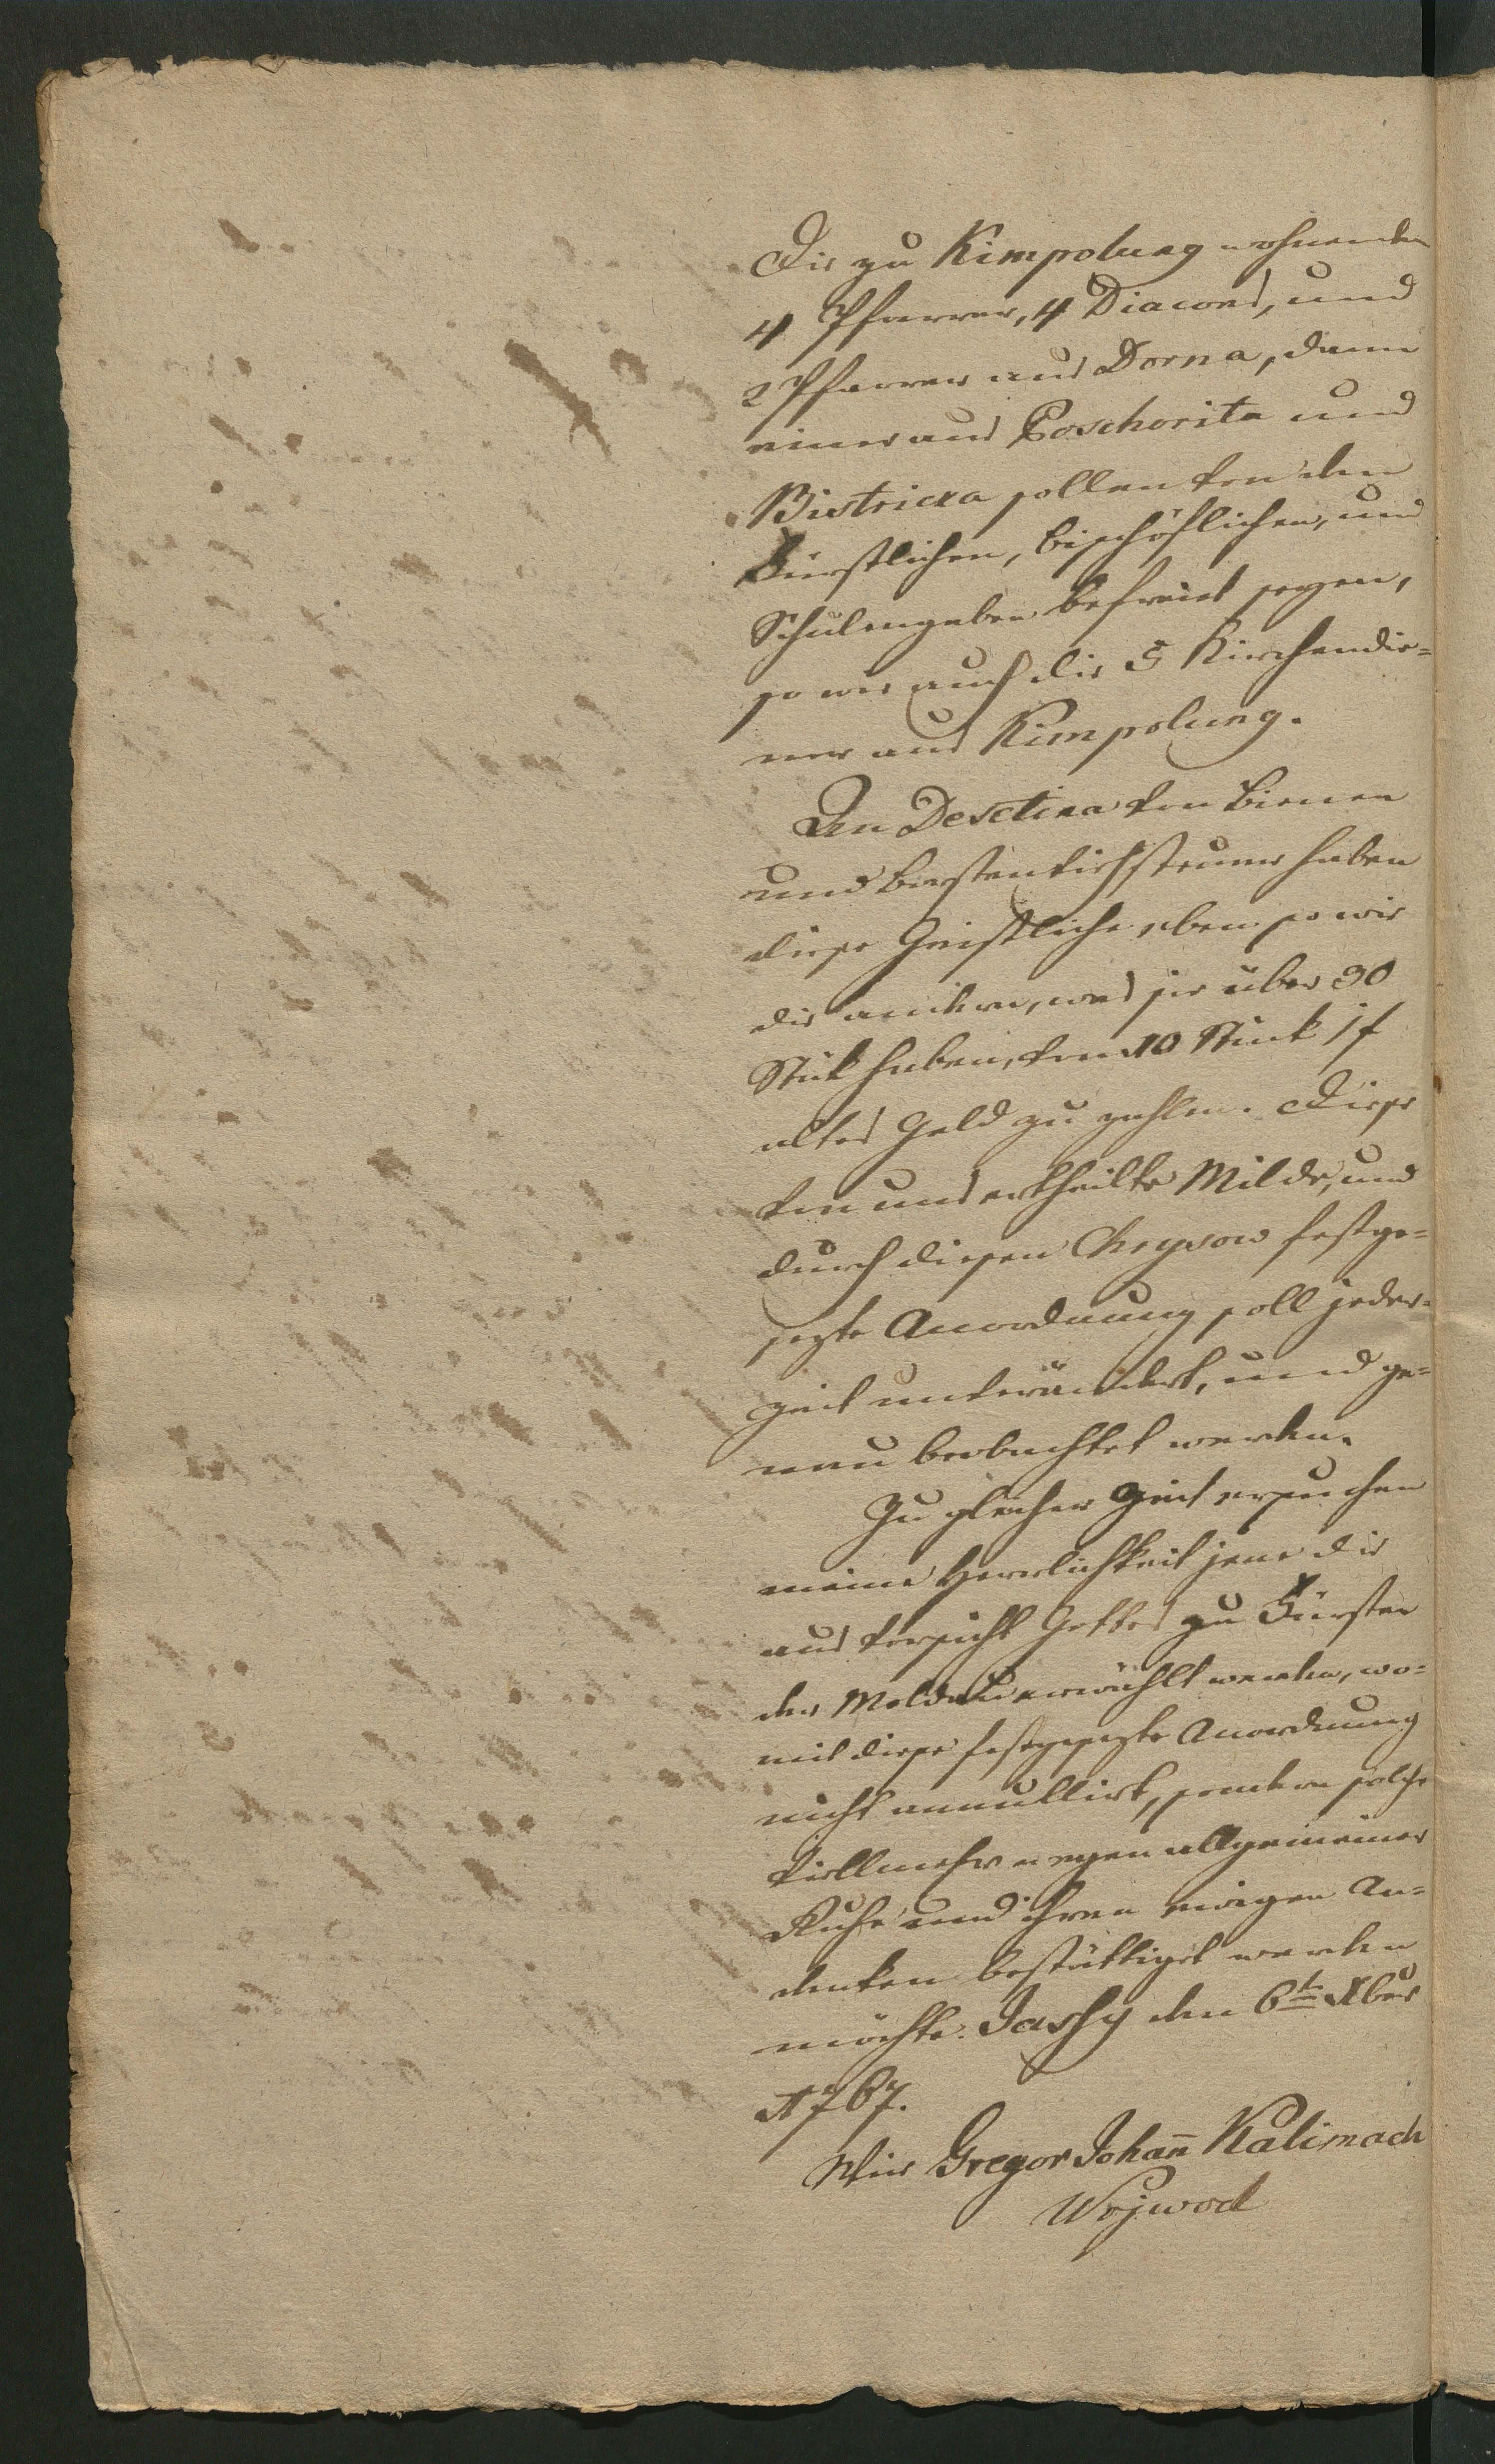 Die zu Kimpolung wohnenden
4 Pfarrer, 4 Diacons, und
2 Pfarrer aus Dorna, dann
einer aus Poschorita und
Bistricza sollen von den
Fürstlichen, bischöflichen, und
Schulengaben befreiet seyen,
so wie auch die 5 Kirchendie=
ner aus Kimpolung.
An Desetina von Bienen
und Borstenviehsteuer haben
diese Geistliche eben so wie
die andern, was sie über 30
Stük haben, von 10 Stük 1 f
altes Geld zu zahlen. Diese
von uns ertheilte Milde, und
durch diesen Chrysow festge=
sezte Anordnung soll jeder=
zeit unverändert, und ge=
nau beobachtet werden.
Zu gleicher Zeit ersuchen
meine Herrlichkeit jene die
aus Vorsicht Gottes zu Fürsten
der Moldau erwählt werden, wo=
mit diese festgesezte Anordnung
nicht annullirt, sondern solche
viellmehr wegen allgemeiner
Ruhe und ihren ewigen An=
denken bestättiget werden
möchte. Jassy den 6t Xber
1767.
Wir Gregor Johan̄ Kalimach
Wojwod